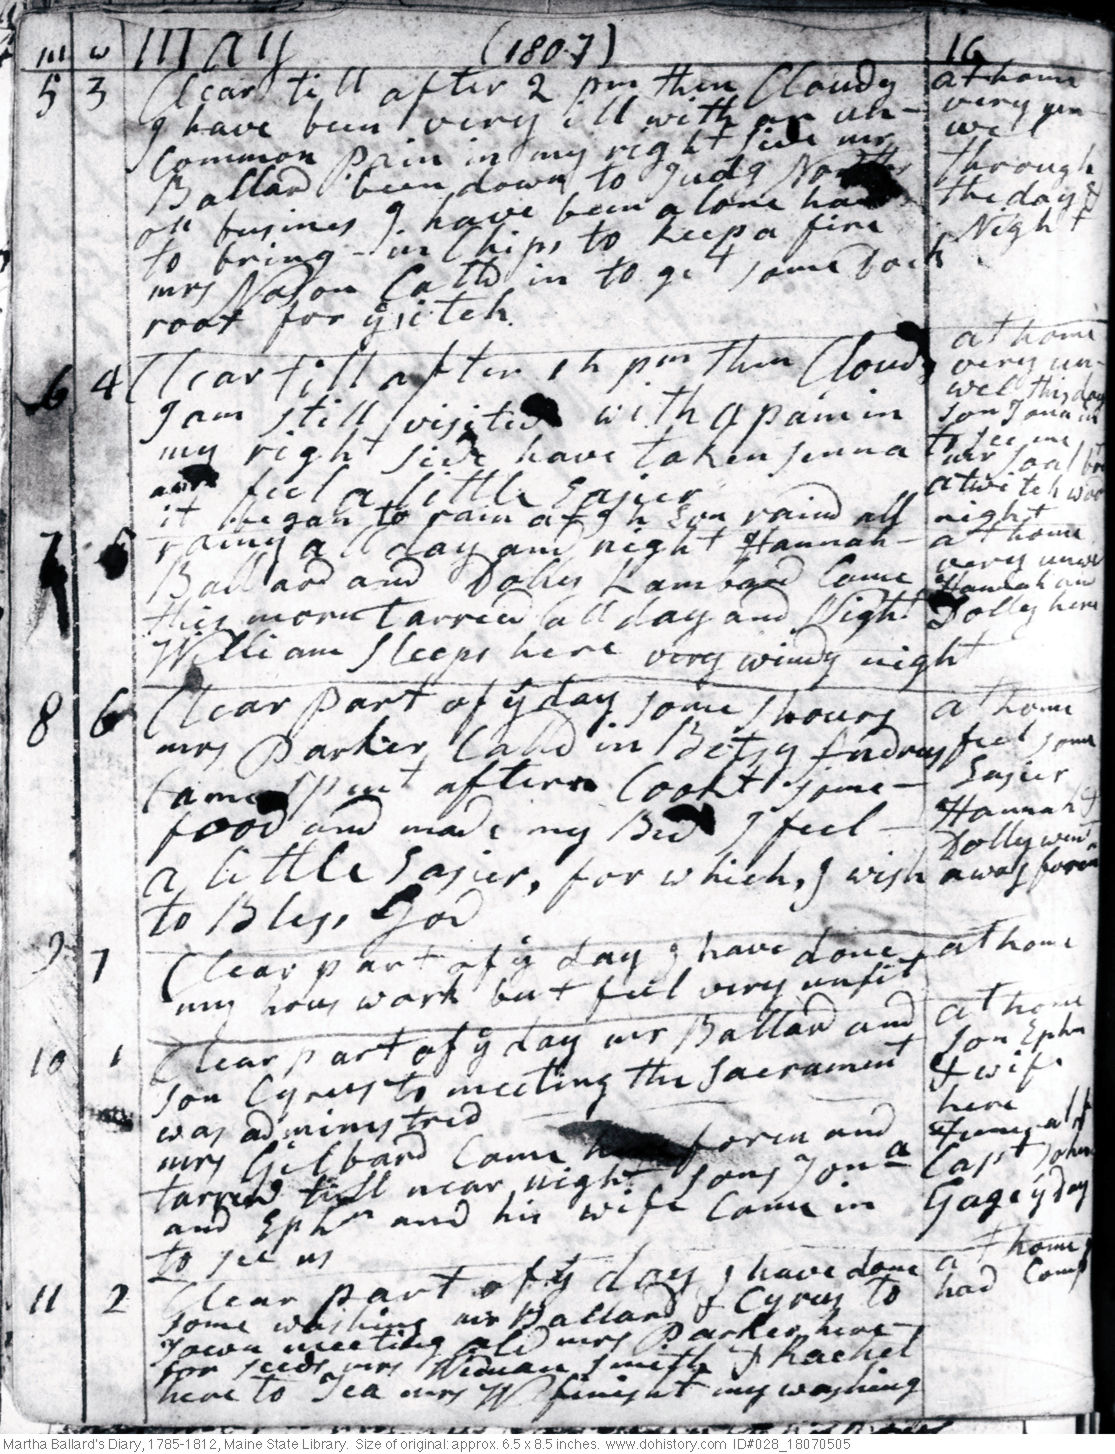 m w May (1807) 16
5 3 Clear till after 2 pm then Cloudy
I have been very ill with an un-
common pain in my right side mr
Ballard been down to Judg Norths
on busines I have been alone had
to bring in Chips to keep a fire
mrs Nason Calld in to get some Dock
root for ÿ itch.
at home
very un
wel
through
the day &
Night
6 4 Clear till after 1 h pm then Cloudy
I am still visited with a pain in
my right side have taken senna
and feel a little Easier
it began to rain at 9 h Evn raind all
night
at home
very un-
wel this day
son Jona in
to see me
7 5 rainy all day and night Hannah
Ballard and Dolly Lambard Came
this morn tarried all day and Night
William Sleeps here very windy night
at home
very unwel
Hannah and
Dolly here
8 6 Clear part of ÿ day some showrs
mrs Parker Calld in Betsy Andrus
Came Spent aftern Cookt some
food and made my Bed I feel
a little Easier, for which, I wish
to Bless God
at home
feel some
Easier
Hannah &
Dolly went
away foren
9 7 Clear part of ÿ day I have done
my hous work but feel very unfit
at home
10 1 Clear part of ÿ day mr Ballard and
son Cyrus to meeting the Sacrament
was administred
mrs Gilbard Came foren and
tarried till near night sons Jona
and Ephm and his wife Came in
to see us
at home
son Ephm
& wife
here
Funeral of
Capt John
Gage ÿ day
11 2 Clear part of ÿ day I have done
some washing mr Ballard & Cyrus to
Town meeting old mrs Parker here
for seeds mrs Wiman Smith & Rachel
here to Tea mrs W finisht my washing
at home
had Comp
Martha Ballard's Diary, 1785-1812, Maine State Library. Size of original: approx. 6.5 x 8.5 inches. www.dohistory.com ID#028_18070505